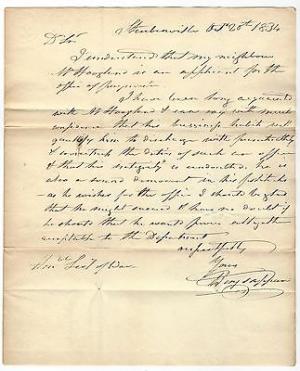 Steubenville Oct 20th 1834
Dr Sir
I understand that my neighbour
Mr Hoagland is an applicant for the
office of
I have been long acquainted
with Mr Hoagland & can say with much
confidence that his business habits well
qualify him to discharge with punctuality
& the duties of such an office
& that his integrity is undoubted, he is
also a sound democrat in his politicks
as he wishes for the office I should be glad
that he might succeed I have no doubt if
he should that he would prove altogether
acceptable to the Department
respectfully
Yours
Honble Secy of War